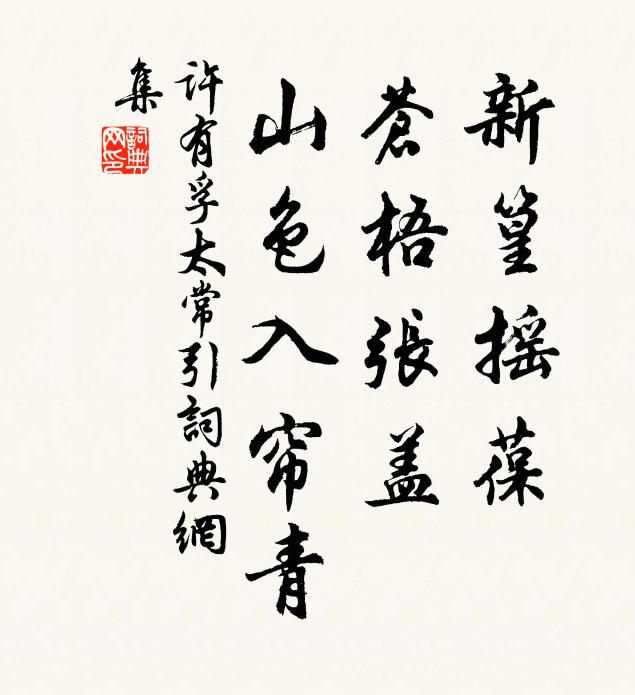 新篁摇葆
蒼梧張盖
山色入帘青
許有孚太常引詞典網
集
詞典網印